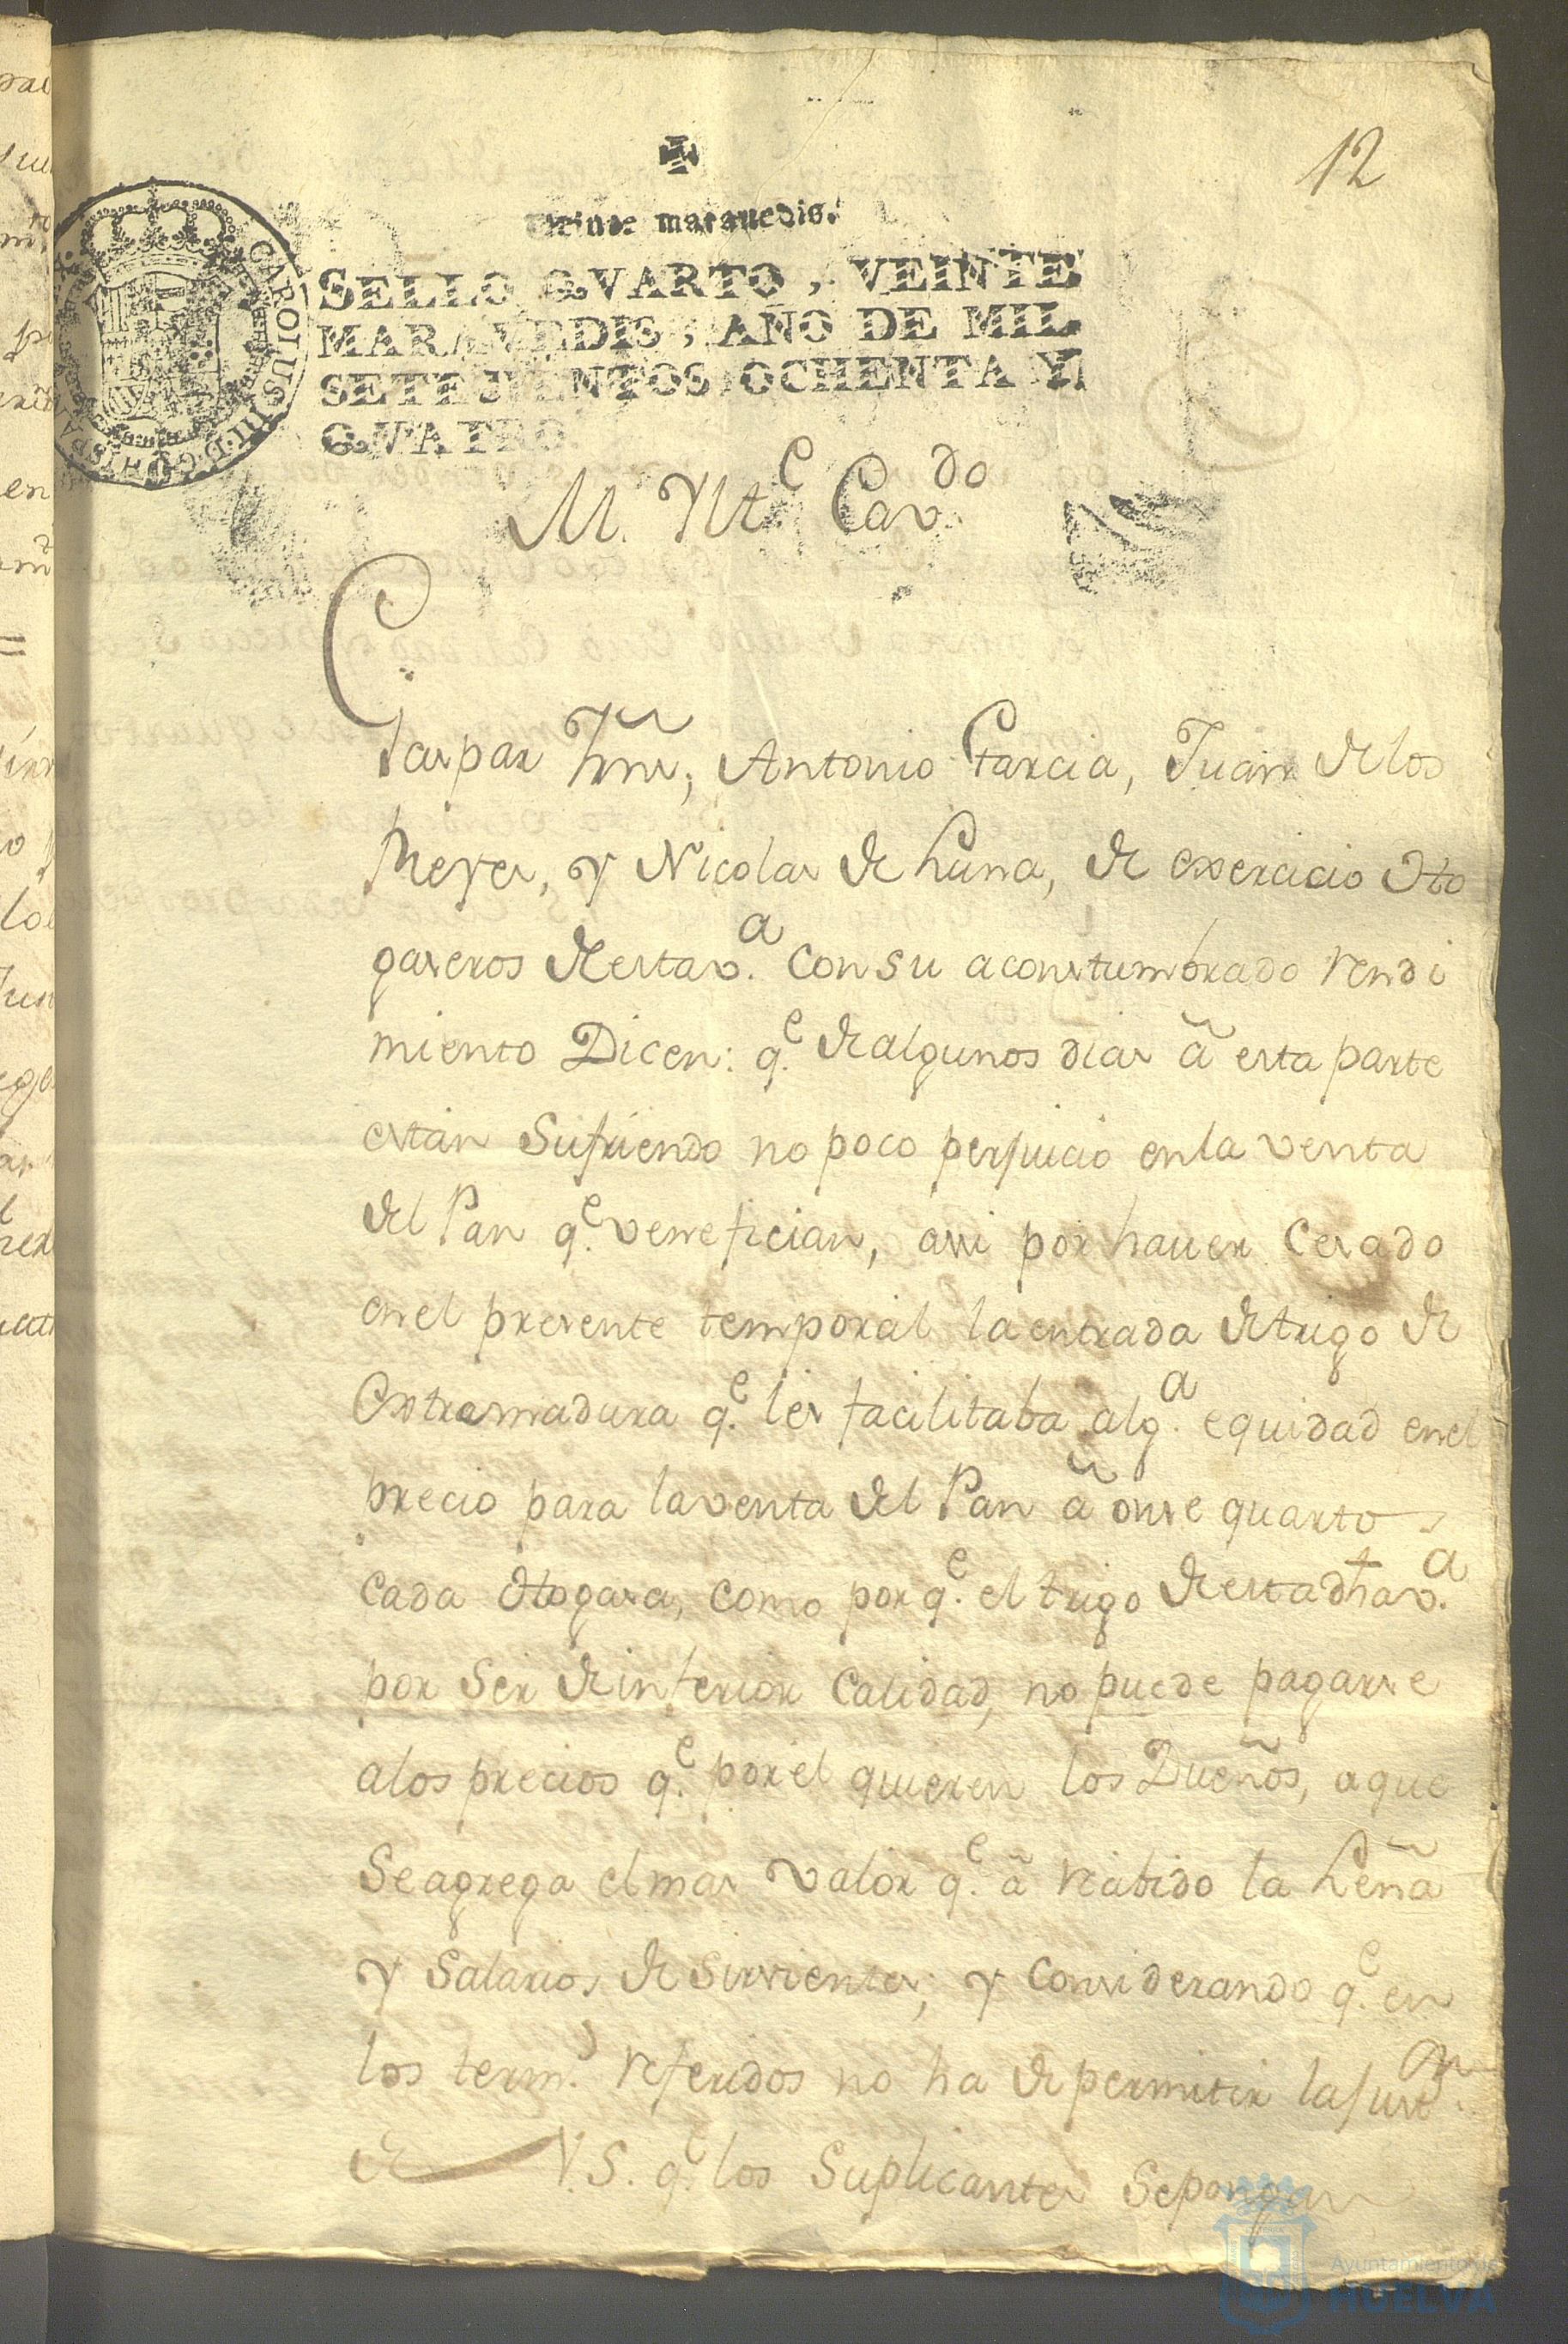 12
Veinte maravedis.
SELLO QVARTO, VEINTE
MARAVEDIS, AÑO DE MIL
SETECIENTOS OCHENTA Y
QVATRO.
CAROLUS III D G HISPA
M. Yltᵉ Cavᵈᵒ
Gaspar Hrñz, Antonio Garcia, Juan de los
Reyes, y Nicolas de Luna, de exercicio Ho
gaseros de esta vᵃ. con su acoustumbrado rendi
miento Dicen: qᵉ. de algunos dias â esta parte
estan sufriendo no poco perjuicio en la venta
del Pan qᵉ. venefician, assi por hauer cesado
en el presente temporal la entrada de trigo de
Extremadura qᵉ. les facilitaba algᵃ. equidad en el
precio para la venta del Pan â onse quartos
cada Hogasa, como por qᵉ. el trigo de esta dha vᵃ.
por ser de inferior calidad, no puede pagarse
a los precios qᵉ. por el quieren los Dueños, a que
se agrega el mas valor qᵉ. â recibido la Leña
y salarios de sirvientes; y considerando qᵉ. en
los termˢ. referidos no ha de permitir la justⁿ.
de V.S. qᵉ. los suplicantes se pongan
Ayuntamiento de
HUELVA